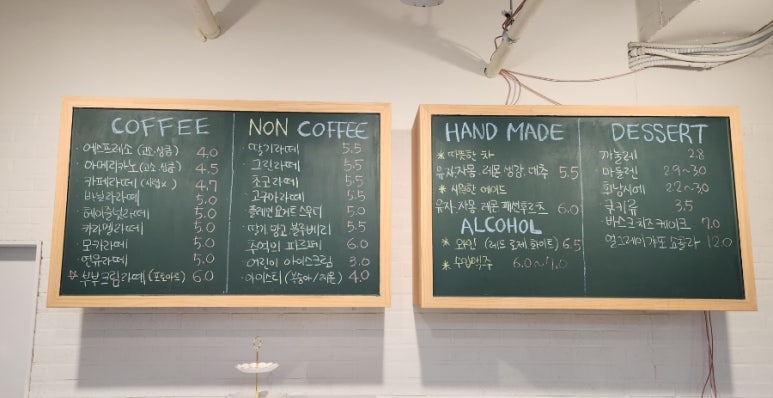 COFFEE
·에스프레소 (고소·상큼) 4.0
·아메리카노 (고소·상큼) 4.5
·카페라떼 (시럽x) 4.7
·바닐라라떼 5.0
·헤이즐넛라떼 5.0
·카라멜라떼 5.0
·모카라떼 5.0
·연유라떼 5.0
☆부부크림라떼 (포토아트) 6.0
NON COFFEE
·딸기라떼 5.5
·그린라떼 5.5
·초코라떼 5.5
·고구마라떼 5.5
·플레인 요거트 스무디 5.0
·딸기 망고 블루베리 5.5
·추억의 파르페 6.0
·어린이 아이스크림 3.0
·아이스티 (복숭아/레몬) 4.0
HAND MADE
*따뜻한 차
유자·자몽·레몬 생강·대추 5.5
*시원한 에이드
유자·자몽 레몬 패션후르츠 6.0
ALCOHOL
*와인 (레드 로제 화이트) 6.5
*수입맥주 6.0~7.0
DESSERT
까눌레 2.8
마들렌 2.9~3.0
휘낭시에 2.2~3.0
쿠키류 3.5
바스크 치즈 케이크 7.0
얼그레이 갸또 쇼콜라 12.0